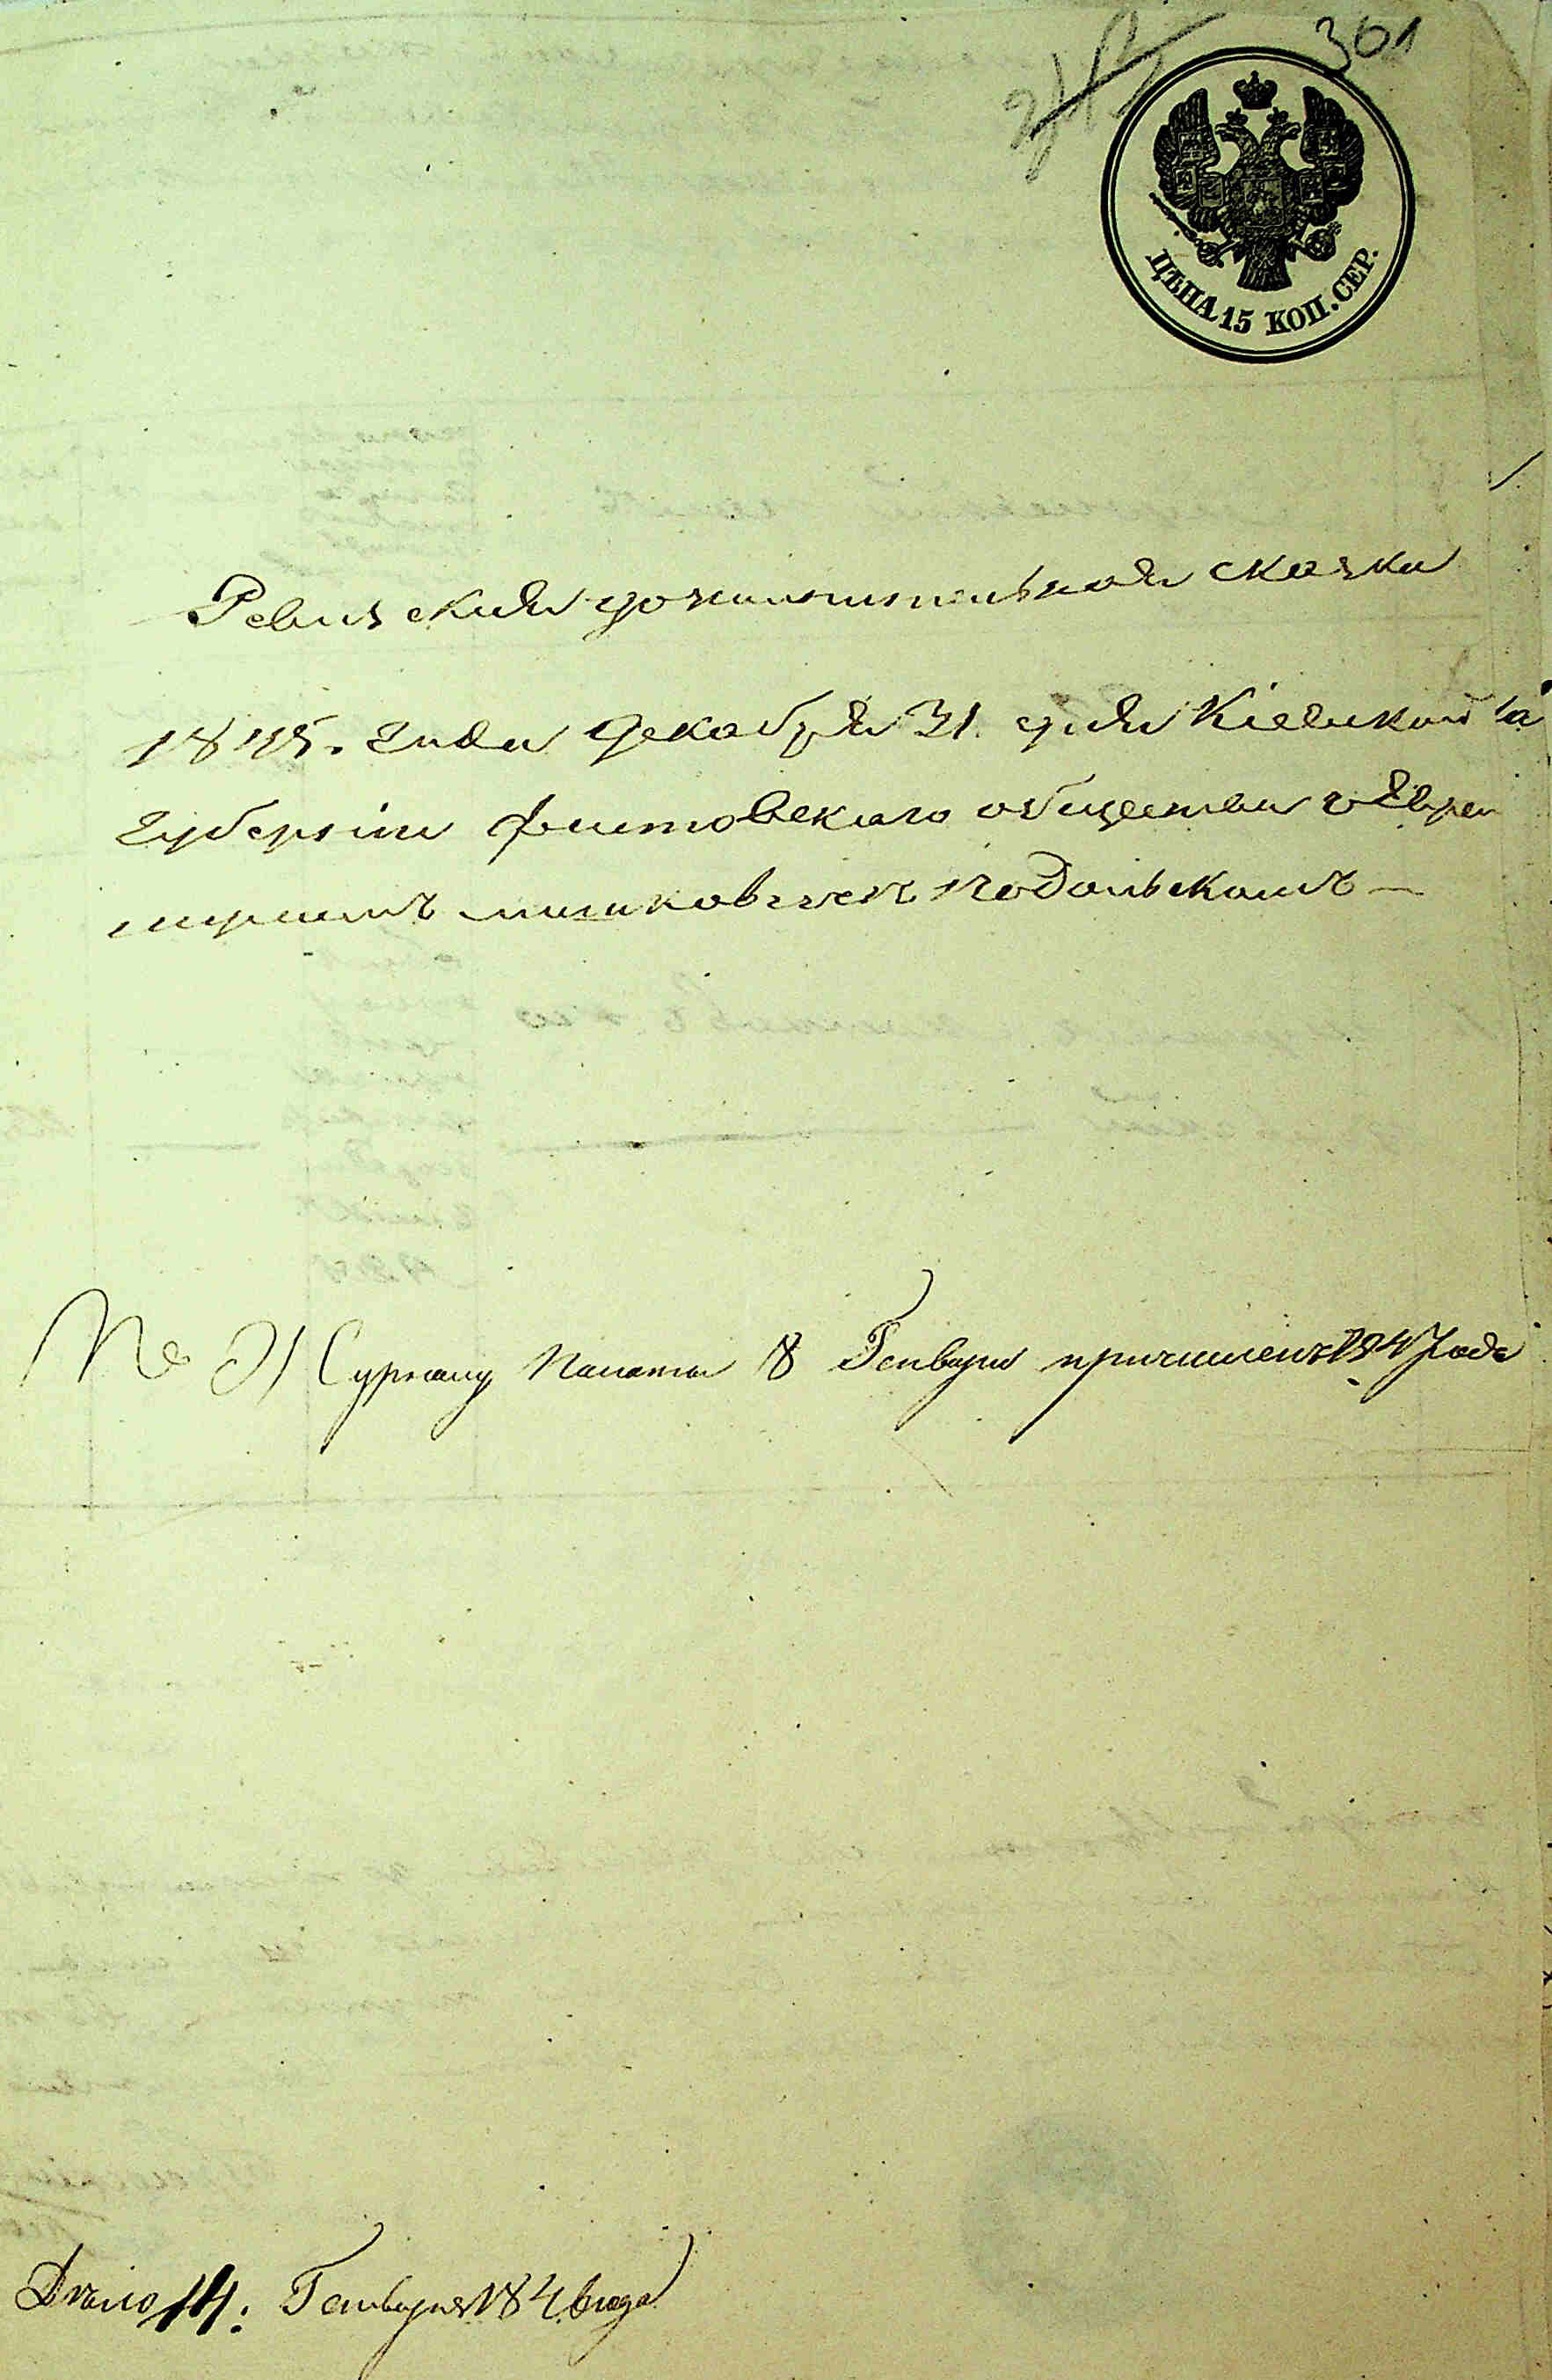 301
ЦѢНА 15 КОП. СЕР.
Ревизская дополнительная сказка
1845. года Декабря 31. дня Кіевской
губерніи Фастовскаго общества о Евреи
Подольскомъ
По Журналу Палаты 8 Генваря причислен 1847 года
Дѣло 14: Генваря 1846 года